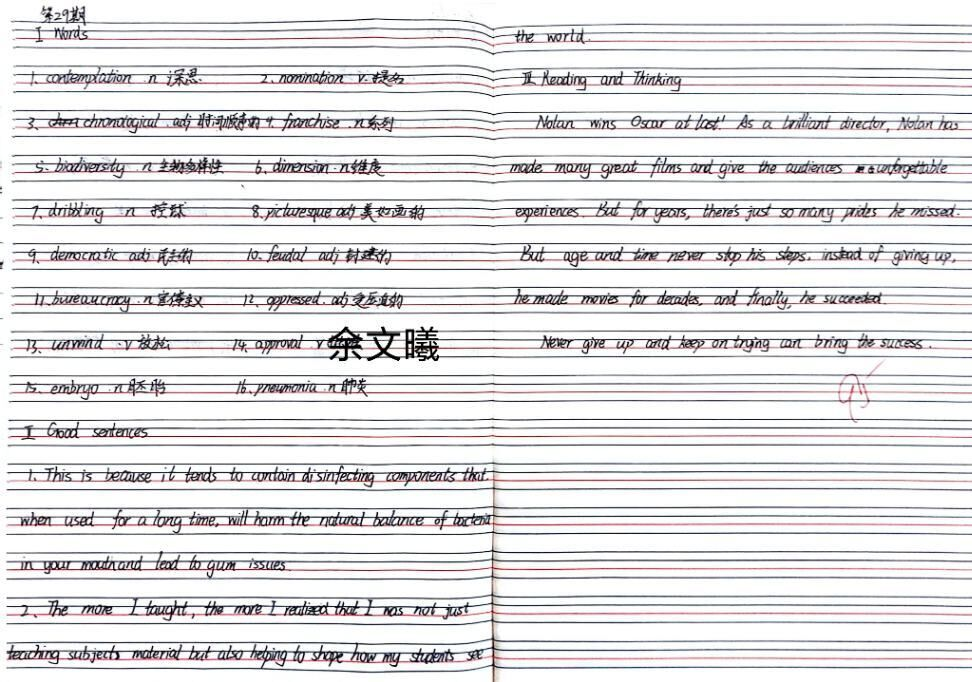 第29期
I Words
1. contemplation n 深思 2. nomination v. 提名
3. chronological adj 时间顺序的 4. franchise n 系列
5. biodiversity n 生物多样性 6. dimension n 维度
7. dribbling n 控球 8. picturesque adj 美如画的
9. democratic adj 民主的 10. feudal adj 封建的
11. bureaucracy n 官僚主义 12. oppressed adj 受压迫的
13. unwind v 放松 14. approval v
余文曦
15. embryo n 胚胎 16. pneumonia n 肺炎
II Good sentences
1. This is because it tends to contain disinfecting components that.
when used for a long time, will harm the natural balance of bacteria
in your mouth and lead to gum issues.
2. The more I taught, the more I realized that I was not just
teaching subjects material but also helping to shape how my students see
the world.
III Reading and Thinking
Nolan wins Oscar at last! As a brilliant director, Nolan has
made many great films and give the audiences unforgettable
experiences. But for years, there's just so many prides he missed.
But age and time never stop his steps. instead of giving up,
he made movies for decades, and finally, he succeeded.
Never give up and keep on trying can bring the success.